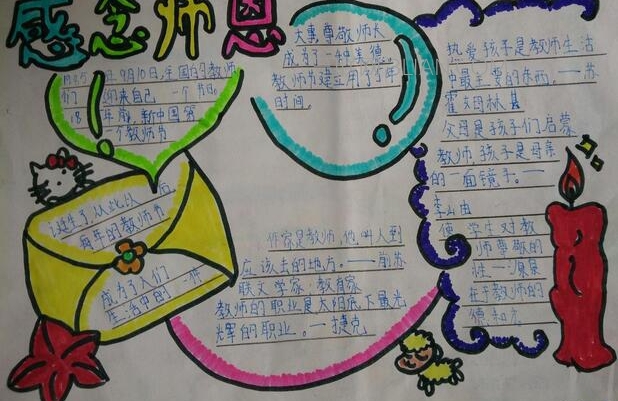 感念师恩
1985年9月10日,中国的教师
们迎来自己一个节日。
年底,新中国第
一个教师节
诞生了,从此以后,
每年的教师节
成为了人们
生活中的一件
大事尊敬师长
成为了一种美德。
教师节建立用了5年
时间。
作家是教师,他叫人到
应该去的地方。——前苏
联文学家、教育家
教师的职业是太阳底下最光
辉的职业。——捷克
热爱孩子是教师生活
中最主要的东西。——苏
霍姆林基
父母是孩子们启蒙
教师,孩子是母亲
的一面镜子。——
李山由
使学生对教
师尊敬的
惟一源泉
在于教师的
德和才。